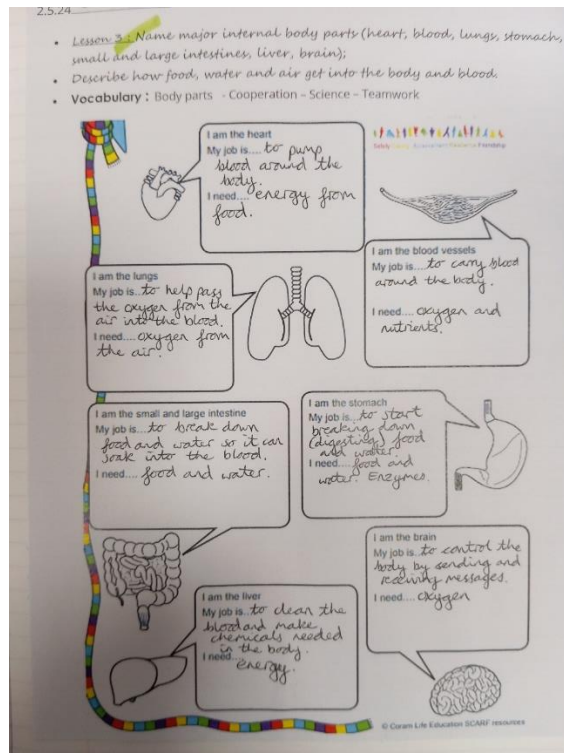 2.5.24
• Lesson 3: Name major internal body parts (heart, blood, lungs, stomach,
small and large intestines, liver, brain);
• Describe how food, water and air get into the body and blood.
• Vocabulary : Body parts - Cooperation – Science – Teamwork
I am the heart
My job is.... to pump
blood around the
body.
I need.... energy from
food.
I am the blood vessels
My job is.... to carry blood
around the body.
I need.... oxygen and
nutrients.
I am the lungs
My job is.. to help pass
the oxygen from the
air into the blood.
I need.... oxygen from
the air.
I am the small and large intestine
My job is.... to break down
food and water so it can
soak into the blood.
I need.... food and water.
I am the stomach
My job is.. to start
breaking down
(digesting) food
and water.
I need.... food and
water. Enzymes.
I am the brain
My job is.. to control the
body by sending and
receiving messages.
I need.... oxygen
I am the liver
My job is.. to clean the
blood and make
chemicals needed
in the body.
I need....
energy.
© Coram Life Education SCARF resources